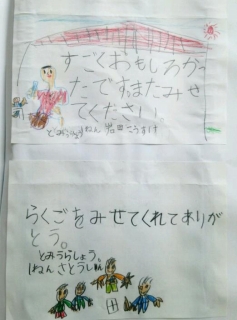 すごくおもしろかっ
たです。またみせ
てください
とみうらしょう1ねん 岩田こうすけ
らくごをみせてくれてありが
とう。
とみうらしょう、
1ねん さとうしゅん